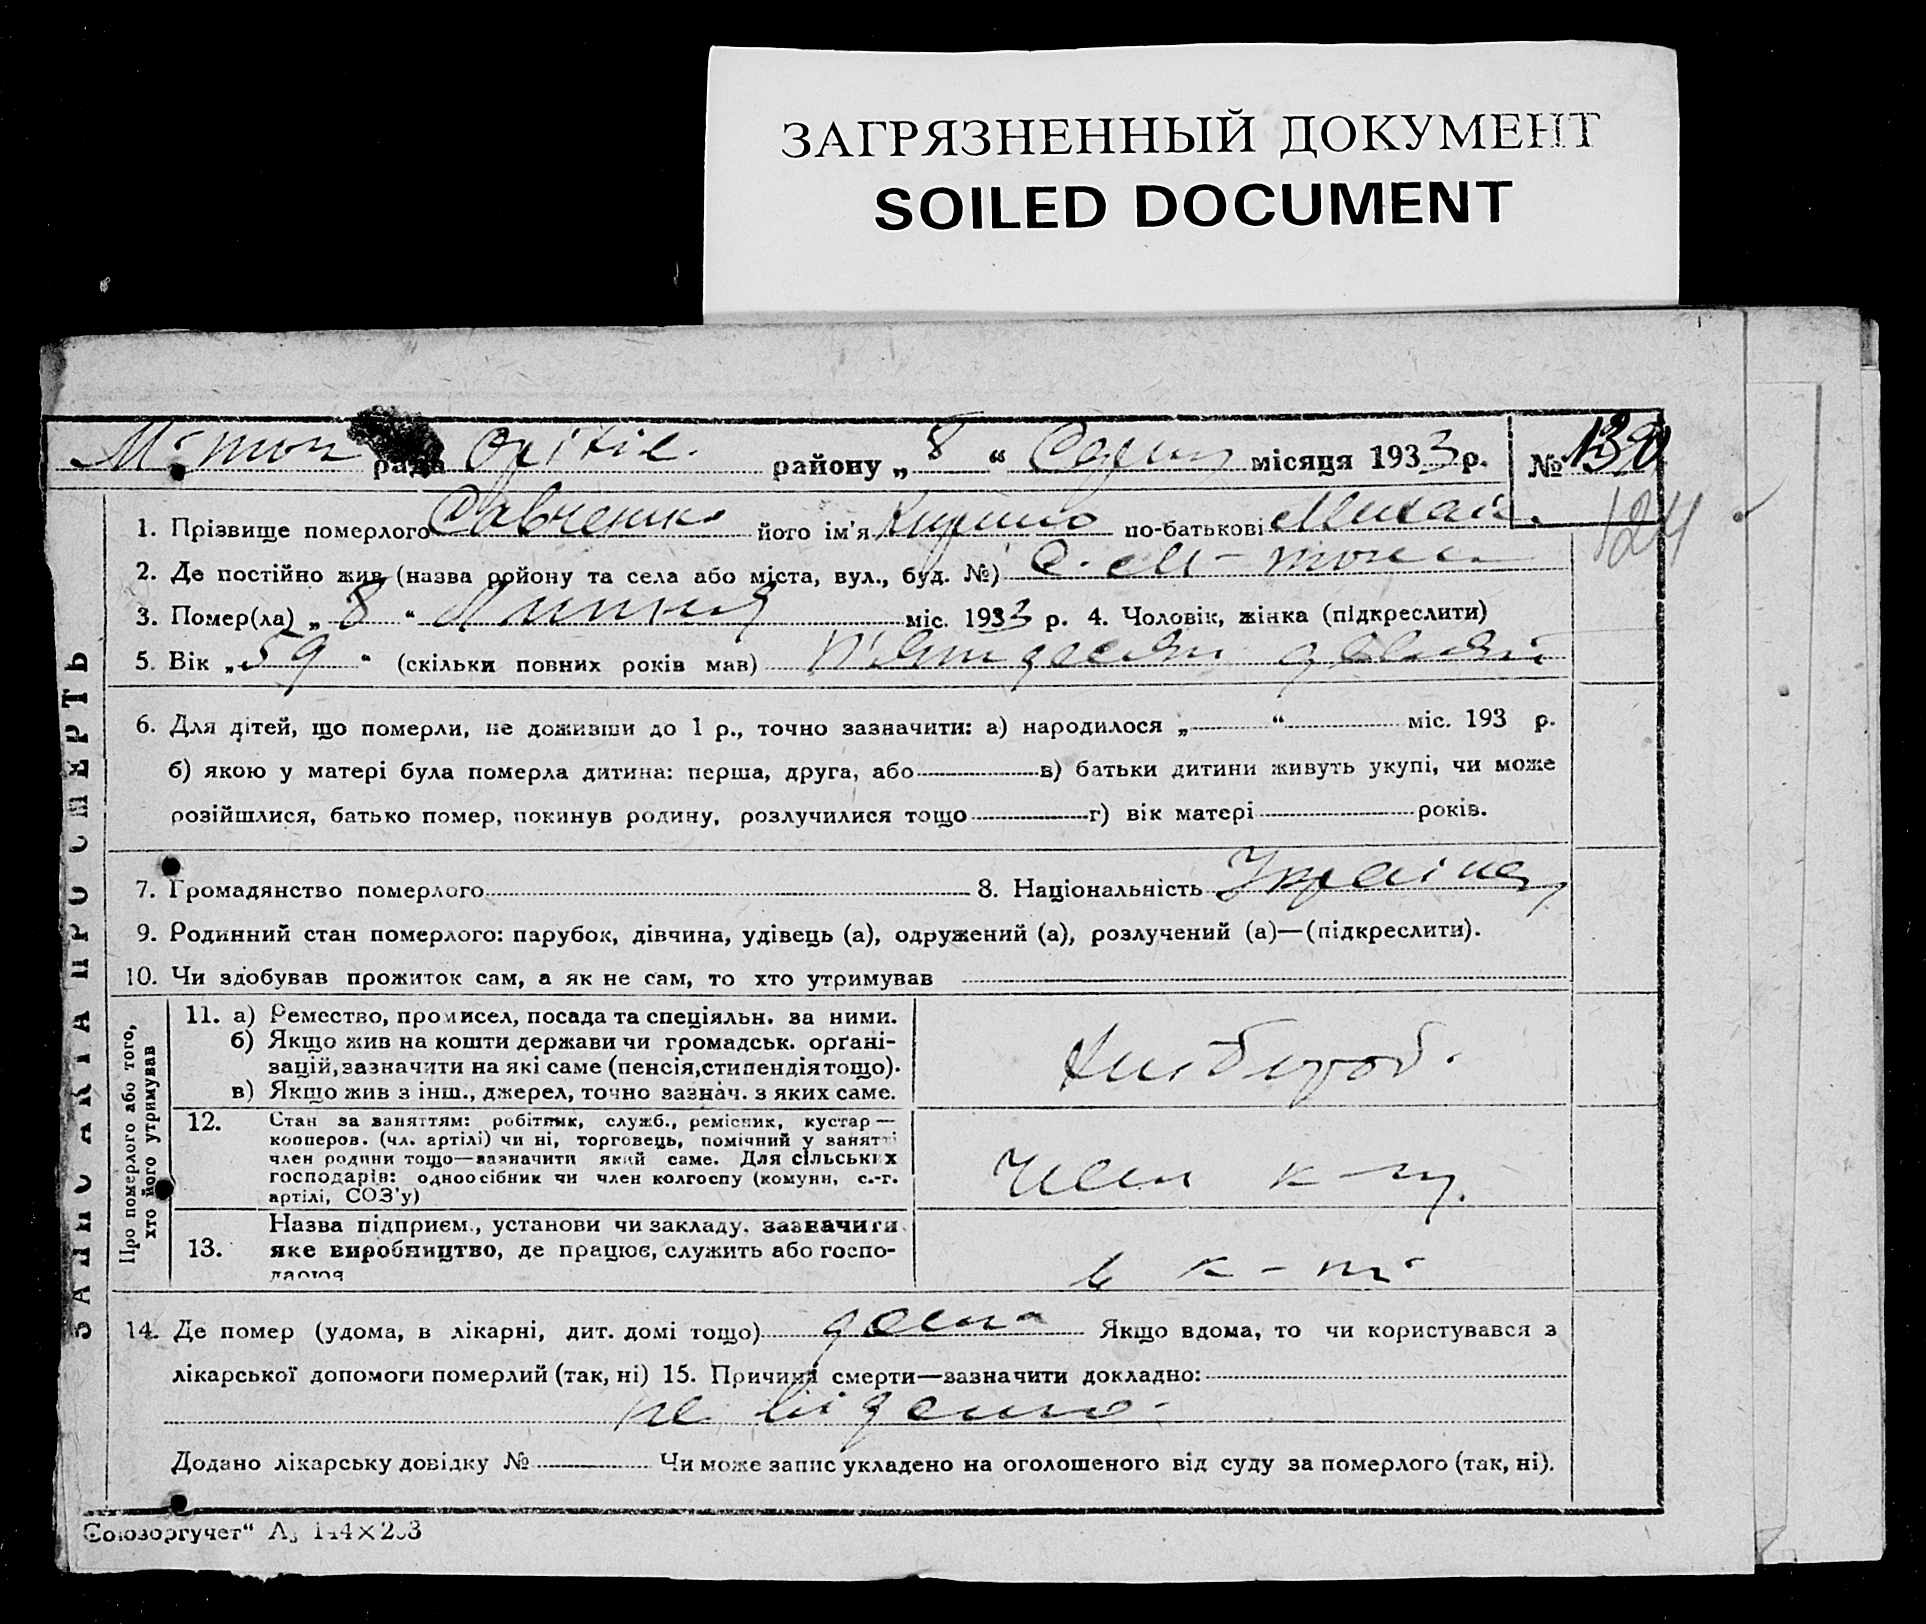 ЗАГРЯЗНЕННЫЙ ДОКУМЕНТ
SOILED DOCUMENT
рада району „ 8 “ місяця 1933 р. №
124
ЗАПИС АКТА ПРО СМЕРТЬ
1. Прізвище померлого Савченко його ім'я Кирило по-батькові Михай
2. Де постійно жив (назва району та села або міста, вул., буд. №)
3. Помер(ла) „ 8 “ Липня міс. 1933 р. 4. Чоловік, жінка (підкреслити)
5. Вік „ 59 “ (скільки повних років мав) п'ятдесят девять
6. Для дітей, що померли, не доживши до 1 р., точно зазначити: а) народилося „ “ міс. 193 р.
б) якою у матері була померла дитина: перша, друга, або в) батьки дитини живуть укупі, чи може
розійшлися, батько помер, покинув родину, розлучилися тощо г) вік матері років.
7. Громадянство померлого 8. Національність Україн
9. Родинний стан померлого: парубок, дівчина, удівець (а), одружений (а), розлучений (а)—(підкреслити).
10. Чи здобував прожиток сам, а як не сам, то хто утримував
Про померлого або того,
хто його утримував
11. а) Ремество, промисел, посада та спеціяльн. за ними.
б) Якщо жив на кошти держави чи громадськ. орґані-
зацій, зазначити на які саме (пенсія, стипендія тощо).
в) Якщо жив з інш., джерел, точно зазнач. з яких саме.
Хлібороб.
12. Стан за заняттям: робітник, служб., ремісник, кустар—
кооперов. (чл. артілі) чи ні, торговець, помічний у занятті
член родини тощо—зазначити який саме. Для сільських
господарів: одноосібник чи член колгоспу (комуни, с.-г.
артілі, СОЗ'у)
Член к-гу.
13. Назва підприєм., установи чи закладу, зазначити
яке виробництво, де працює, служить або госпо-
дарює
в к-гі
14. Де помер (удома, в лікарні, дит. домі тощо) дома Якщо вдома, то чи користувався з
лікарської допомоги померлий (так, ні) 15. Причини смерти—зазначити докладно:
не відомо.
Додано лікарську довідку № Чи може запис укладено на оголошеного від суду за померлого (так, ні).
Союзоргучет“